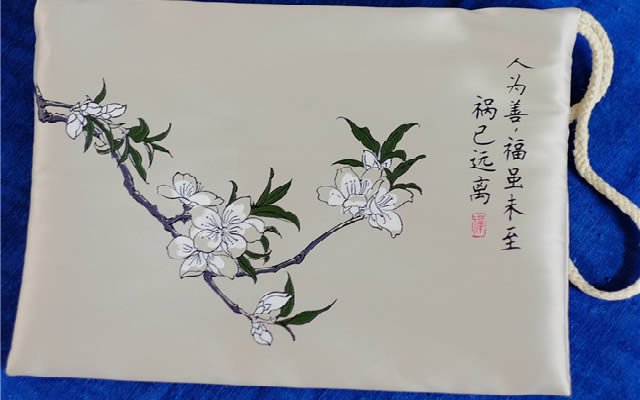 人为善，福虽未至
祸已远离